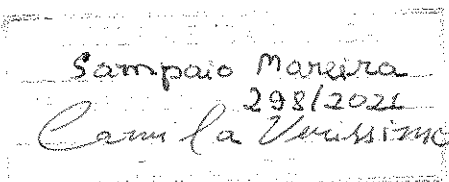 Sampaio Mareira
298/2021
Camila Verissimo